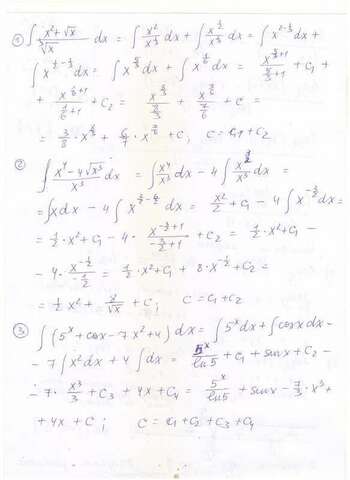 ① ∫ (x² + √x)/∛x dx = ∫ x²/x^(1/3) dx + ∫ x^(1/2)/x^(1/3) dx = ∫ x^(2-1/3) dx +
∫ x^(1/2-1/3) dx = ∫ x^(5/3) dx + ∫ x^(1/6) dx = x^(5/3+1)/(5/3+1) + C₁ +
+ x^(1/6+1)/(1/6+1) + C₂ = x^(8/3)/(8/3) + x^(7/6)/(7/6) + C =
= 3/8 · x^(8/3) + 6/7 · x^(7/6) + C, C = C₁ + C₂
② ∫ (x⁴ - 4√x³)/x³ dx = ∫ x⁴/x³ dx - 4 ∫ x^(3/2)/x³ dx =
= ∫ x dx - 4 ∫ x^(3/2-6/2) dx = x²/2 + C₁ - 4 ∫ x^(-3/2) dx =
= 1/2 · x² + C₁ - 4 · x^(-3/2+1)/(-3/2+1) + C₂ = 1/2 · x² + C₁ -
- 4 · x^(-1/2)/(-1/2) = 1/2 · x² + C₁ + 8 · x^(-1/2) + C₂ =
= 1/2 x² + 8/√x + C; C = C₁ + C₂
③ ∫ (5ˣ + cosx - 7x² + 4) dx = ∫ 5ˣ dx + ∫ cosx dx -
- 7 ∫ x² dx + 4 ∫ dx = 5ˣ/ln5 + C₁ + sinx + C₂ -
- 7 · x³/3 + C₃ + 4x + C₄ = 5ˣ/ln5 + sinx - 7/3 · x³ +
+ 4x + C; C = C₁ + C₂ + C₃ + C₄